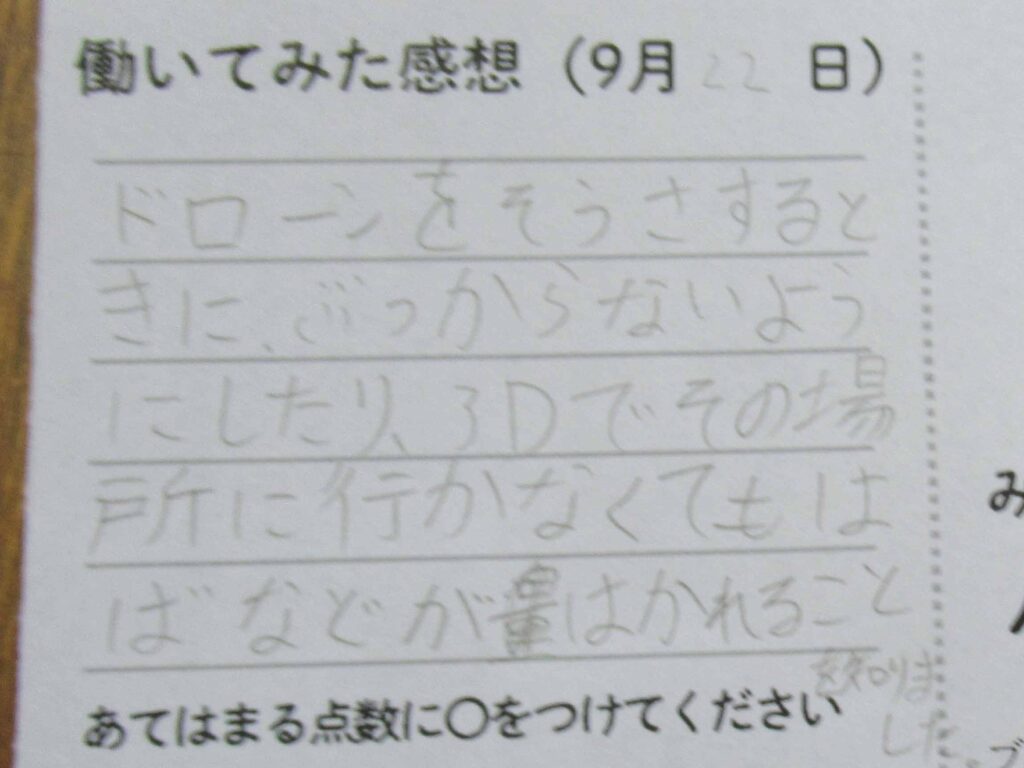 働いてみた感想（9月22日）
ドローンをそうさすると
きに、ぶつからないよう
にしたり、3Dでその場
所に行かなくてもは
ばなどが量はかれること
を知りま
した。
あてはまる点数に〇をつけてください
み
ブ